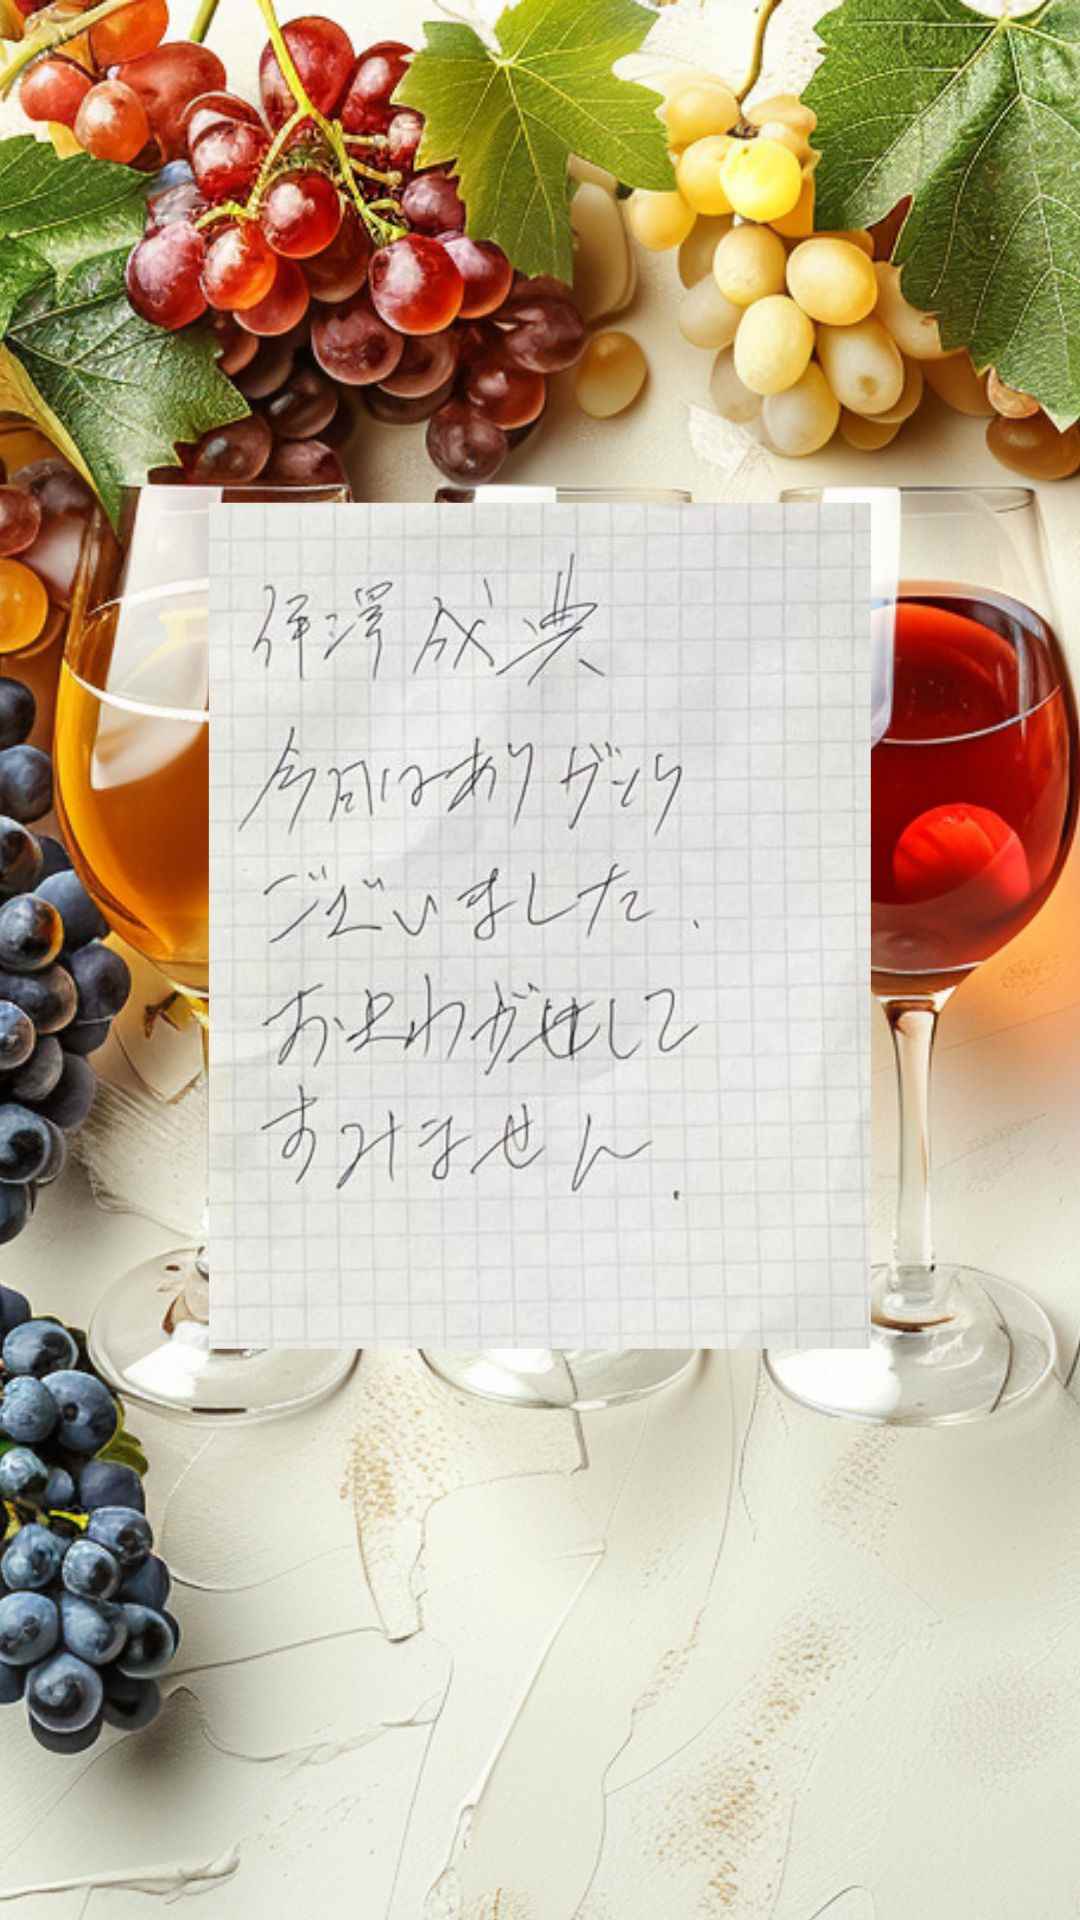 伊澤成典
今日はありがとう
ございました.
お止わがせして
すみません.